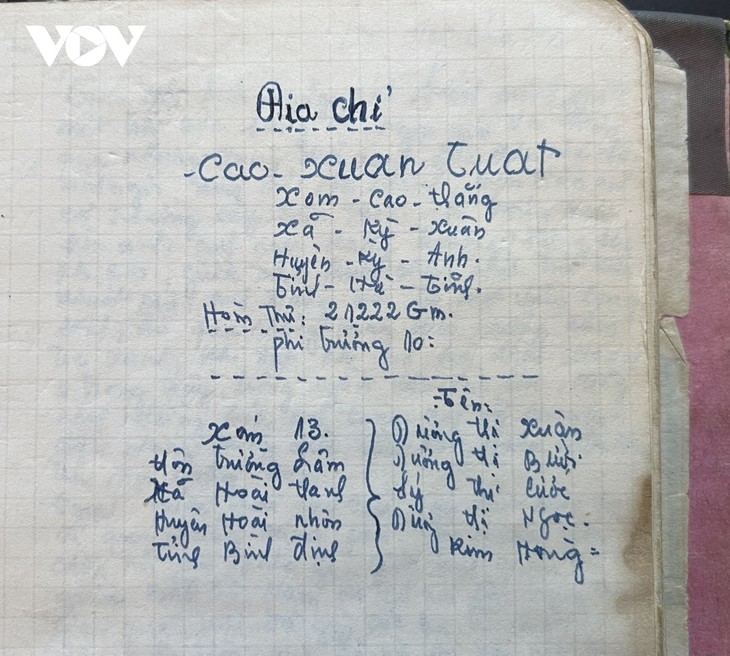 VOV
Địa chỉ
- Cao - Xuan Tuat
Xom - Cao - thắng
Xã - Kỳ - Xuân
Huyện - Kỳ - Anh.
Tỉnh - Hà - Tỉnh.
Hòm Thư: 21222 Gm.
phi trường 10:
- Tên:
Xóm 13.
thôn trường Lâm
Xã Hoài thanh
Huyện Hoài nhơn
Tỉnh Bình định
Dương thị Xuân
Dương thị Bưởi
Lý thị Cước
Dương thị Ngọc.
Kim Hong =